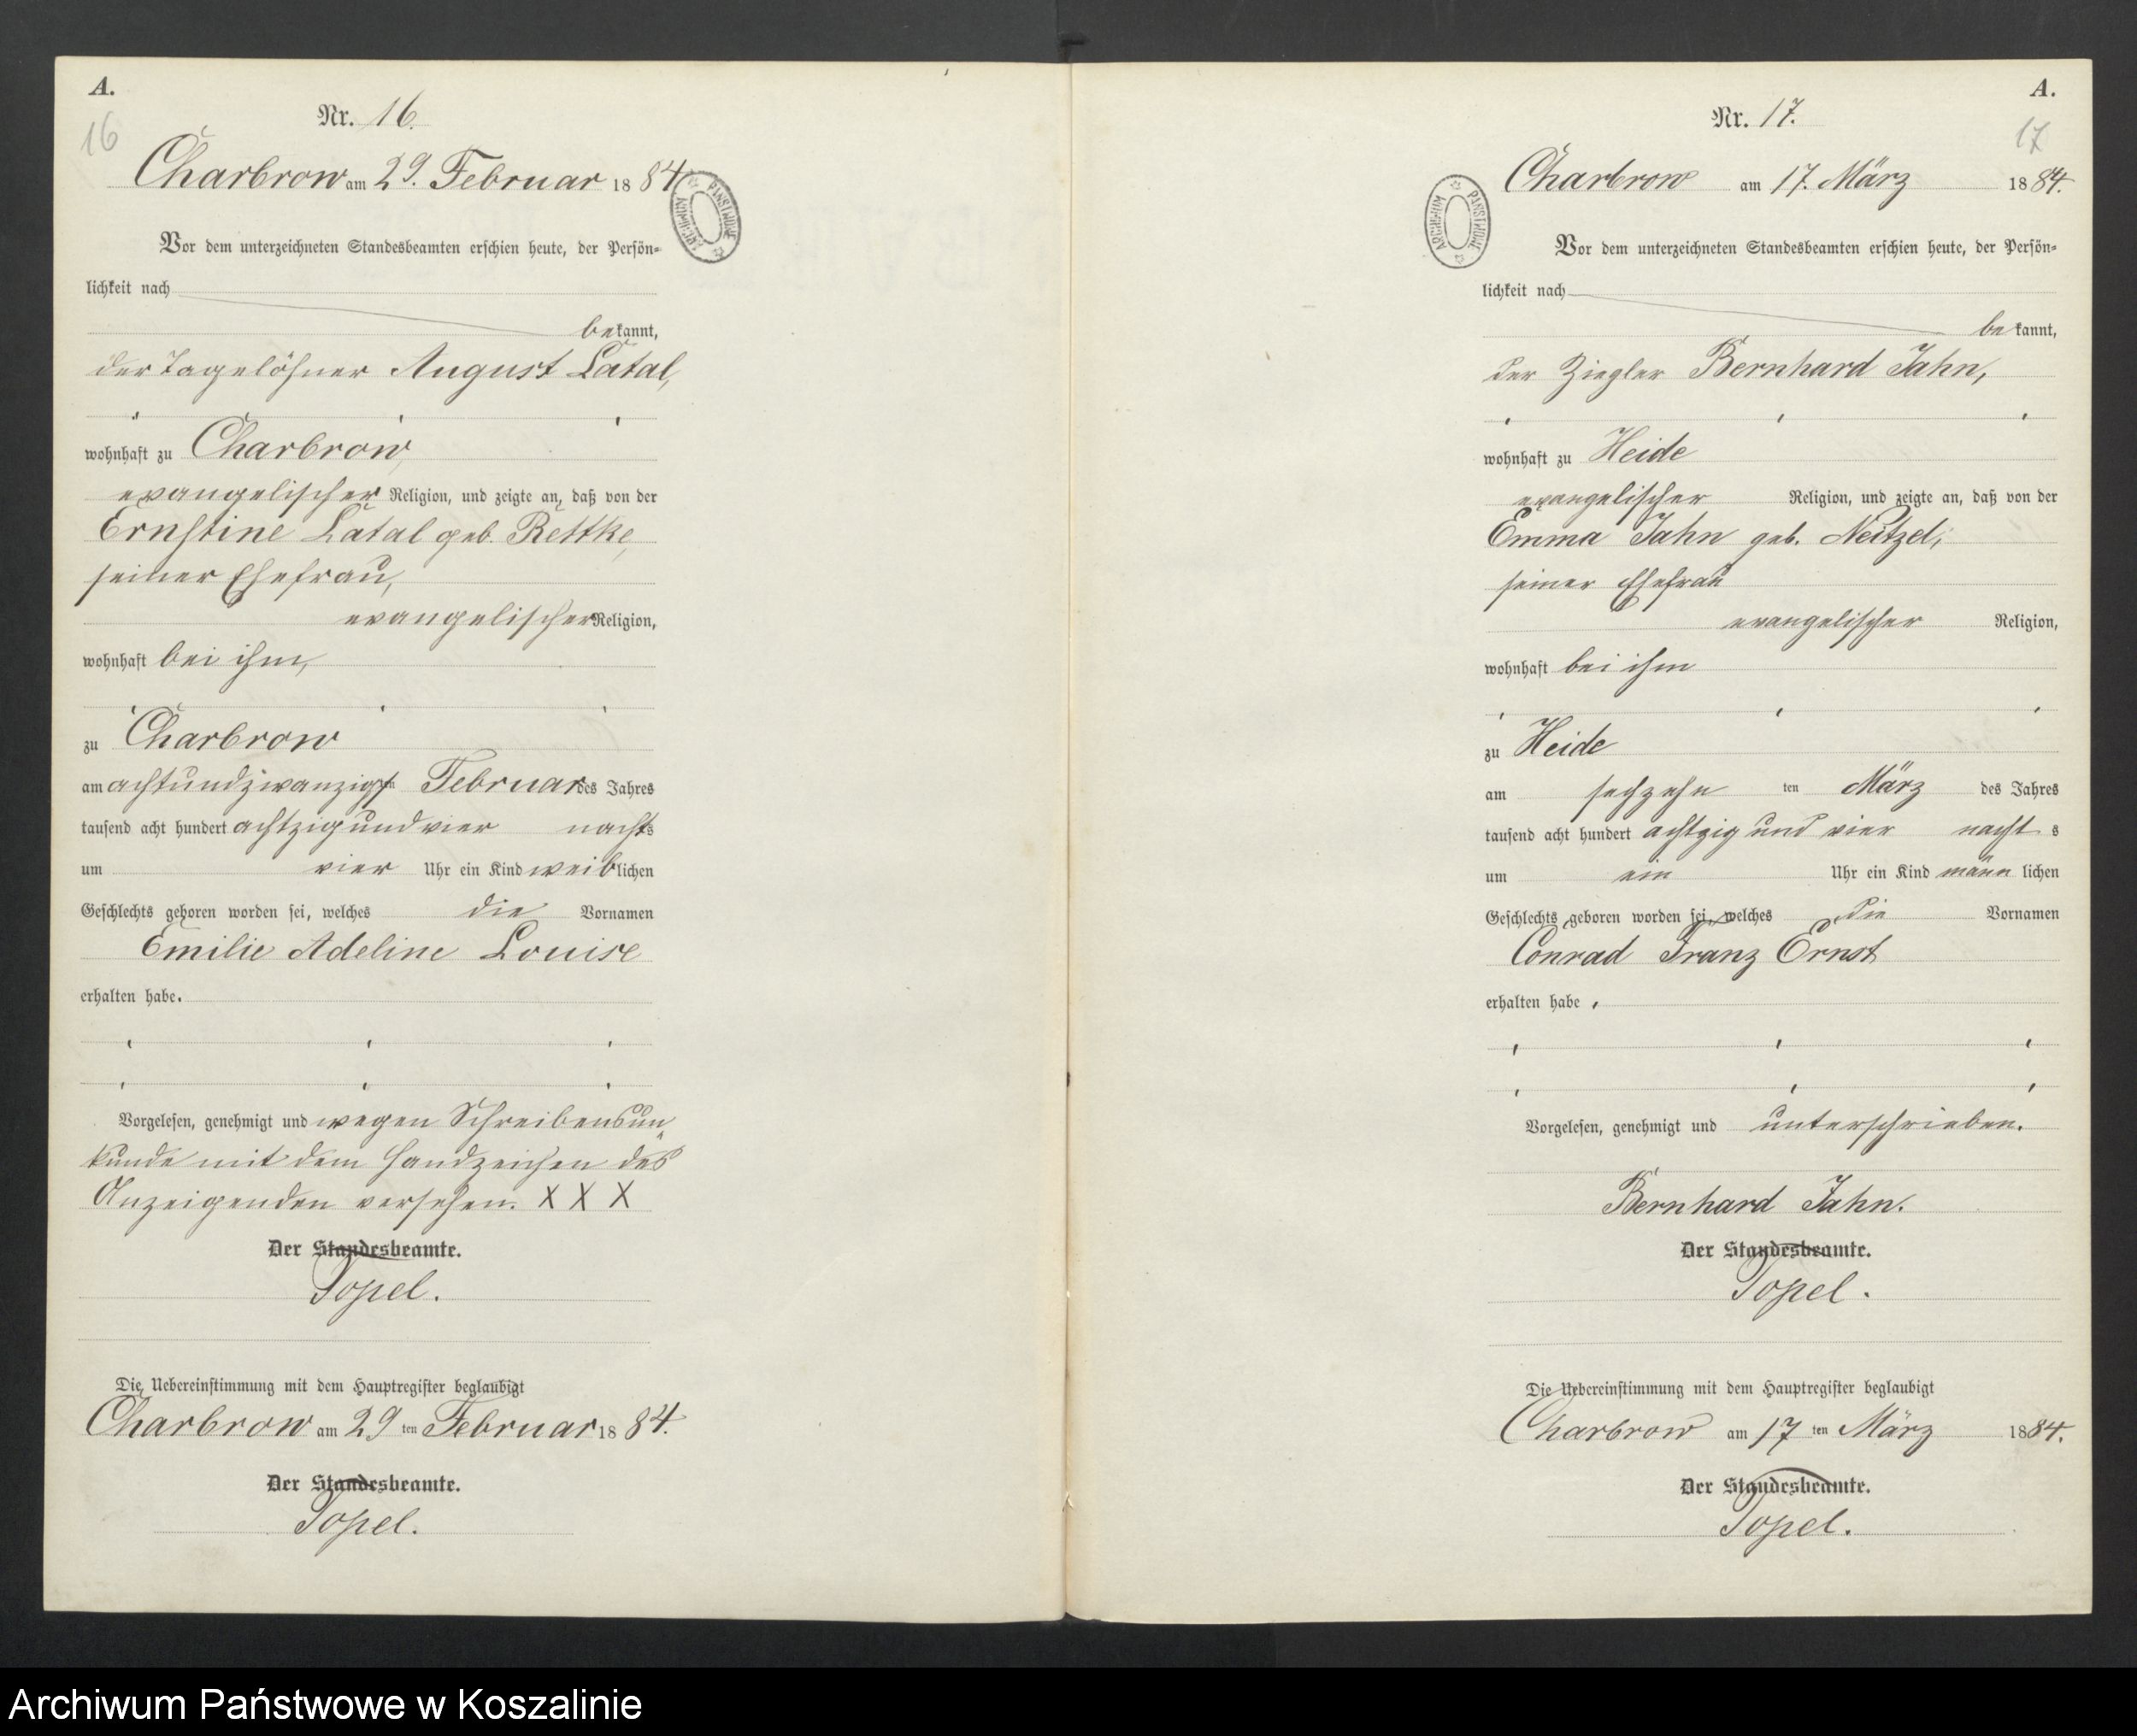 A.
Nr. 16.
16
Charbrow am 29. Februar 1884.
ARCHIWUM PAŃSTWOWE
Vor dem unterzeichneten Standesbeamten erschien heute, der Persön=
lichkeit nach
bekannt,
der Tagelöhner August Latal,
wohnhaft zu Charbrow,
evangelischer Religion, und zeigte an, daß von der
Ernstine Latal geb. Rettke,
seiner Ehefrau,
evangelischer Religion,
wohnhaft bei ihm,
zu Charbrow
am achtundzwanzigsten Februar des Jahres
tausend acht hundert achtzig und vier nachts
um vier Uhr ein Kind weiblichen
Geschlechts geboren worden sei, welches die Vornamen
Emilie Adeline Louise
erhalten habe.
Vorgelesen, genehmigt und wegen Schreibensun„
kunde mit dem Handzeichen des
Anzeigenden versehen. X X X
Der Standesbeamte.
Topel.
Die Uebereinstimmung mit dem Hauptregister beglaubigt
Charbrow am 29 ten Februar 1884.
Der Standesbeamte.
Topel.
A.
Nr. 17.
17
Charbrow am 17. März 1884.
ARCHIWUM PAŃSTWOWE
Vor dem unterzeichneten Standesbeamten erschien heute, der Persön=
lichkeit nach
bekannt,
der Ziegler Bernhard Jahn,
wohnhaft zu Heide
evangelischer Religion, und zeigte an, daß von der
Emma Jahn geb. Neitzel,
seiner Ehefrau
evangelischer Religion,
wohnhaft bei ihm
zu Heide
am sechzehn ten März des Jahres
tausend acht hundert achtzig und vier nacht s
um ein Uhr ein Kind männ lichen
Geschlechts geboren worden sei, welches die Vornamen
Conrad Franz Ernst
erhalten habe.
Vorgelesen, genehmigt und unterschrieben.
Bernhard Jahn.
Der Standesbeamte.
Topel.
Die Uebereinstimmung mit dem Hauptregister beglaubigt
Charbrow am 17 ten März 1884.
Der Standesbeamte.
Topel.
Archiwum Państwowe w Koszalinie